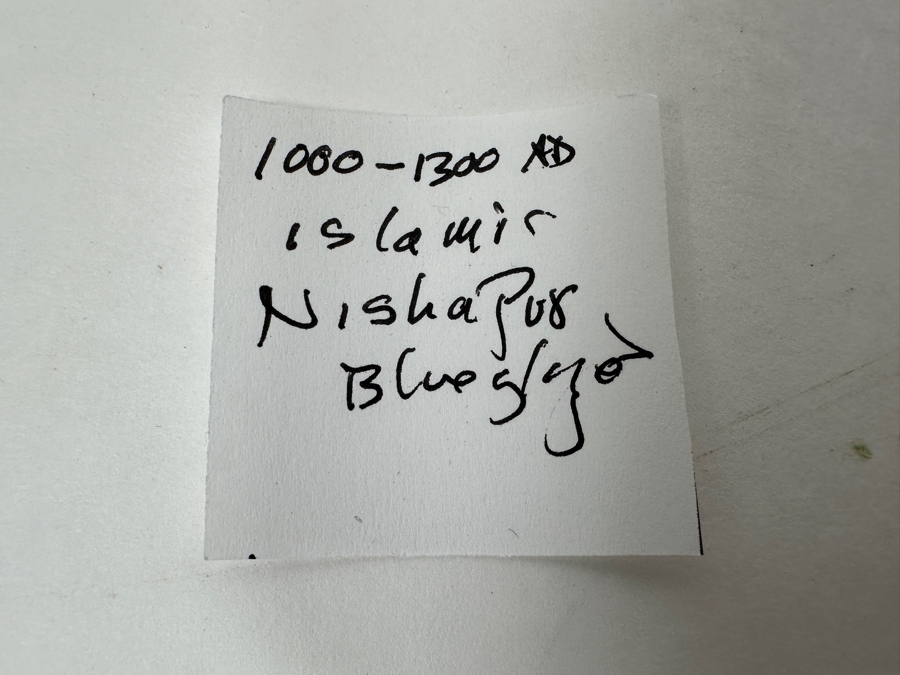 1000-1300 AD
islamic
Nishapur
Blue glyed